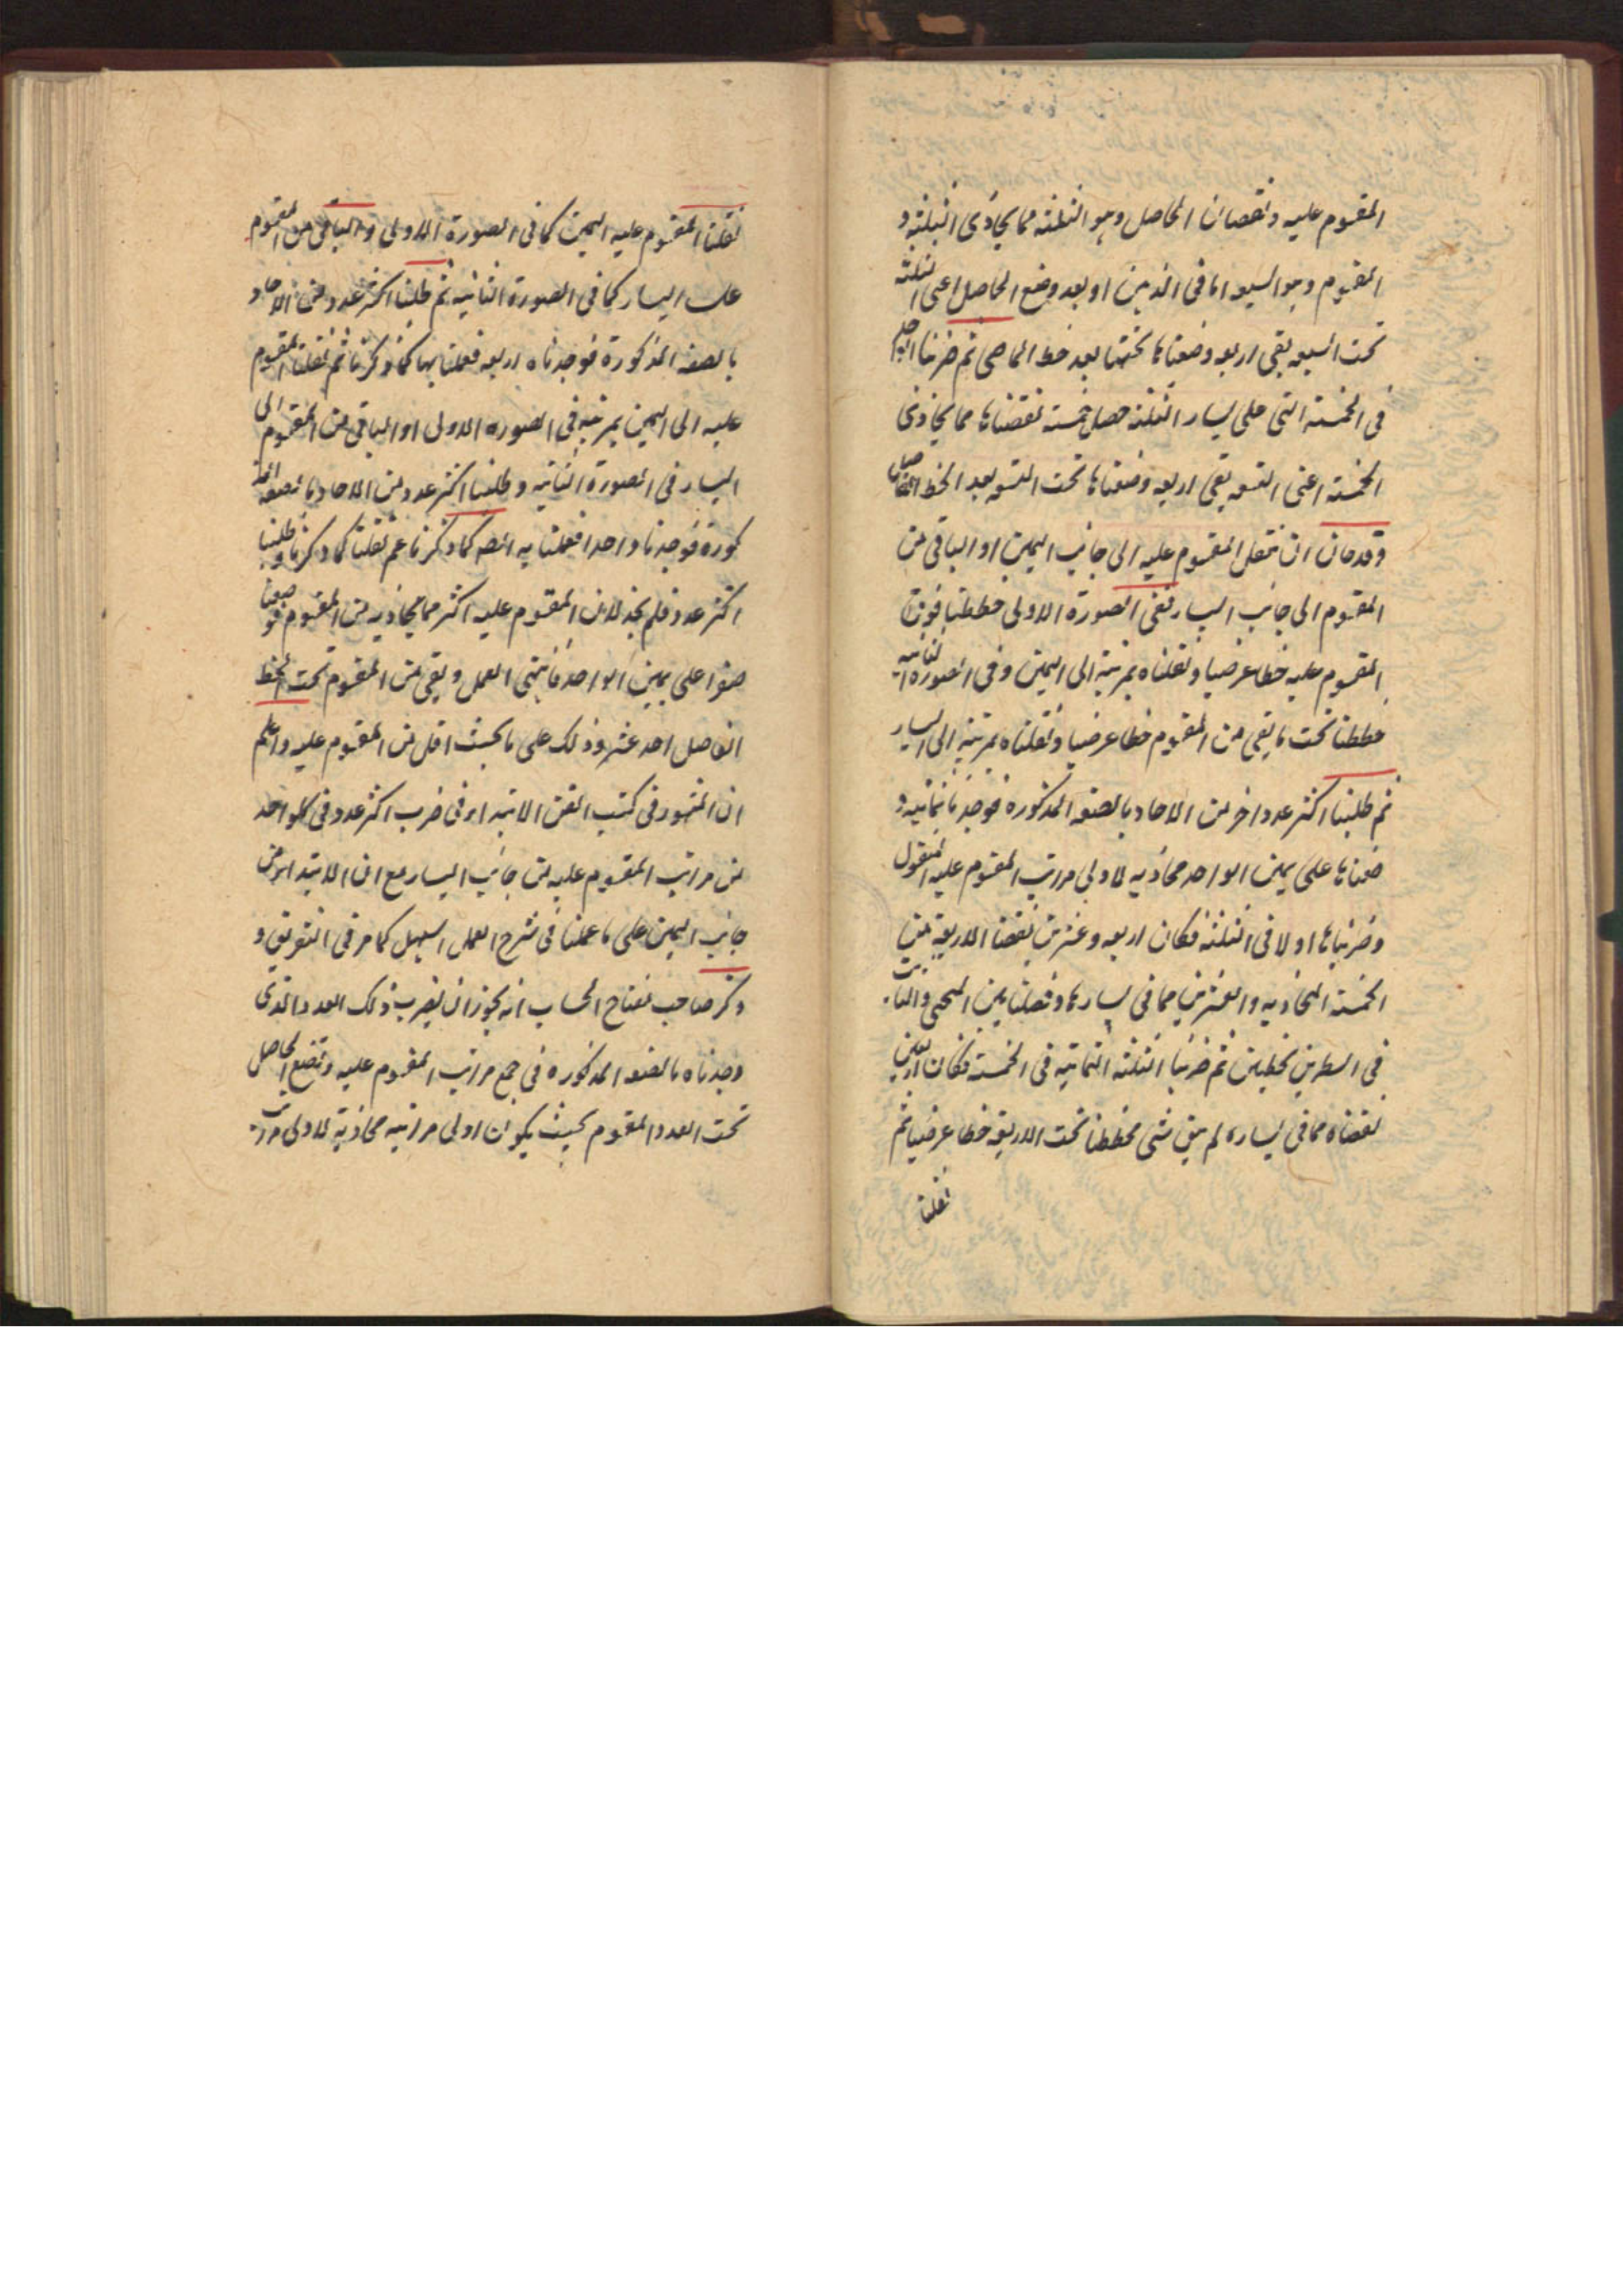 المقسوم عليه ونقصان الحاصل وهو الثلثة مما يحاذى الثلثة و
المقسوم وهو السبعة اما فى الذهن او بعد وضع الحاصل اعنى الثلثة
تحت السبعة بقى اربعه وضعناها تحتها بعد خط الماحى ثم ضربنا الواحد
فى الخمسة التى على يسار الثلثة حصل خمسة نقصناها مما يحاذى
الخمسة اعنى التسعه بقى اربعه وضعناها تحت التسعه بعد الخط الفاصل
وقد حان ان ننقل المقسوم عليه الى جانب اليمين او الباقى من
المقسوم الى جانب اليسار ففى الصورة الاولى خططنا فوق
المقسوم عليه خطا عرضيا ونقلناه بمرتبة الى اليمين وفى الصورة الثانيه
خططنا تحت ما بقى من المقسوم خطا عرضيا ونقلناه بمرتبة الى اليسار
ثم طلبنا اكثر عدد اخر من الاحاد بالصفه المذكوره فوجدنا ثمانيه و
ضعناها على يمين الواحد محاذيه لاولى مراتب المقسوم عليه المنقول
وضربناها اولا فى الثلثة فكان اربعه وعشرين نقصنا الاربعة من
الخمسة المحاذيه والعشرين مما فى يسارها وفصلنا بين الممحى والثابت
فى السطرين بخطين ثم ضربنا الثمانيه فى الخمسة فكان اربعين
نقصناه مما فى يساره لم يبق شى فخططنا تحت الاربعة خطا عرضيا ثم
نقلنا
نقلنا المقسوم عليه اليمين كما فى الصورة الاولى والباقى من المقسوم
اليسار كما فى الصورة الثانيه ثم طلبنا اكثر عدد من الاحاد
بالصفه المذكورة فوجدناه اربعه فعملنا بها كما ذكرنا ثم نقلنا المقسوم
عليه الى اليمين بمرتبه فى الصوره الاولى او الباقى من المقسوم الى
اليسار فى الصورة الثانيه وطلبنا اكثر عدد من الاحاد بالصفه المذ
كورة فوجدنا واحدا فعملنا به كما ذكرنا ثم نقلنا كما ذكرنا وطلبنا
اكثر عدد فلم نجد لان المقسوم عليه اكثر مما يحاذيه من المقسوم فوضعنا
صفرا على يمين الواحد فانتهى العمل وبقى من المقسوم تحت الخط
الفاصل احد عشر وذلك على ما يجب اقل من المقسوم عليه واعلم
ان المشهور فى كتب الفن الابتداء فى ضرب اكثر عدد فى كلواحد
من مراتب المقسوم عليه من جانب اليسار مع ان الابتداء من
جانب اليمين على ما عملنا فى شرح العمل اسهل كما مر فى التفريق و
ذكر صاحب مفتاح الحساب انه يجوز ان نضرب ذلك العدد الذى
وجدناه بالصفه المذكوره فى جمع مراتب المقسوم عليه ونضع الحاصل
تحت العدد المقسوم بحيث يكون اولى مراتبه محاذية لاولى مراتب